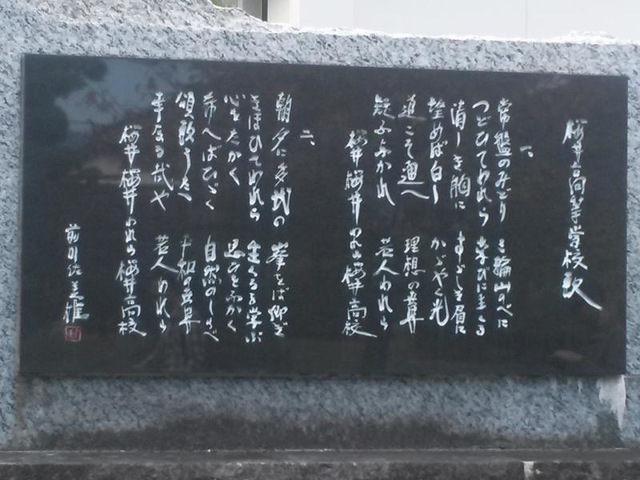 櫻井高等学校歌
一、
常盤のみどり 三輪山のべに
つどひてわれら 学びに
清しき胸に すゞしき眉に
望めば白し かゞやく光
道こそ通へ 理想の
疑ふなかれ 若人われら
櫻井櫻井 われら櫻井高校
二、
朝夕に多武の 峯をば仰ぎ
きほひてわれら 生くるを学ぶ
心をたかく 思ひをふかく
ひゞく 自然のしらべ
頌歌うたへ 平和の
若人われら
櫻井櫻井 われら櫻井高校
前川佐美雄